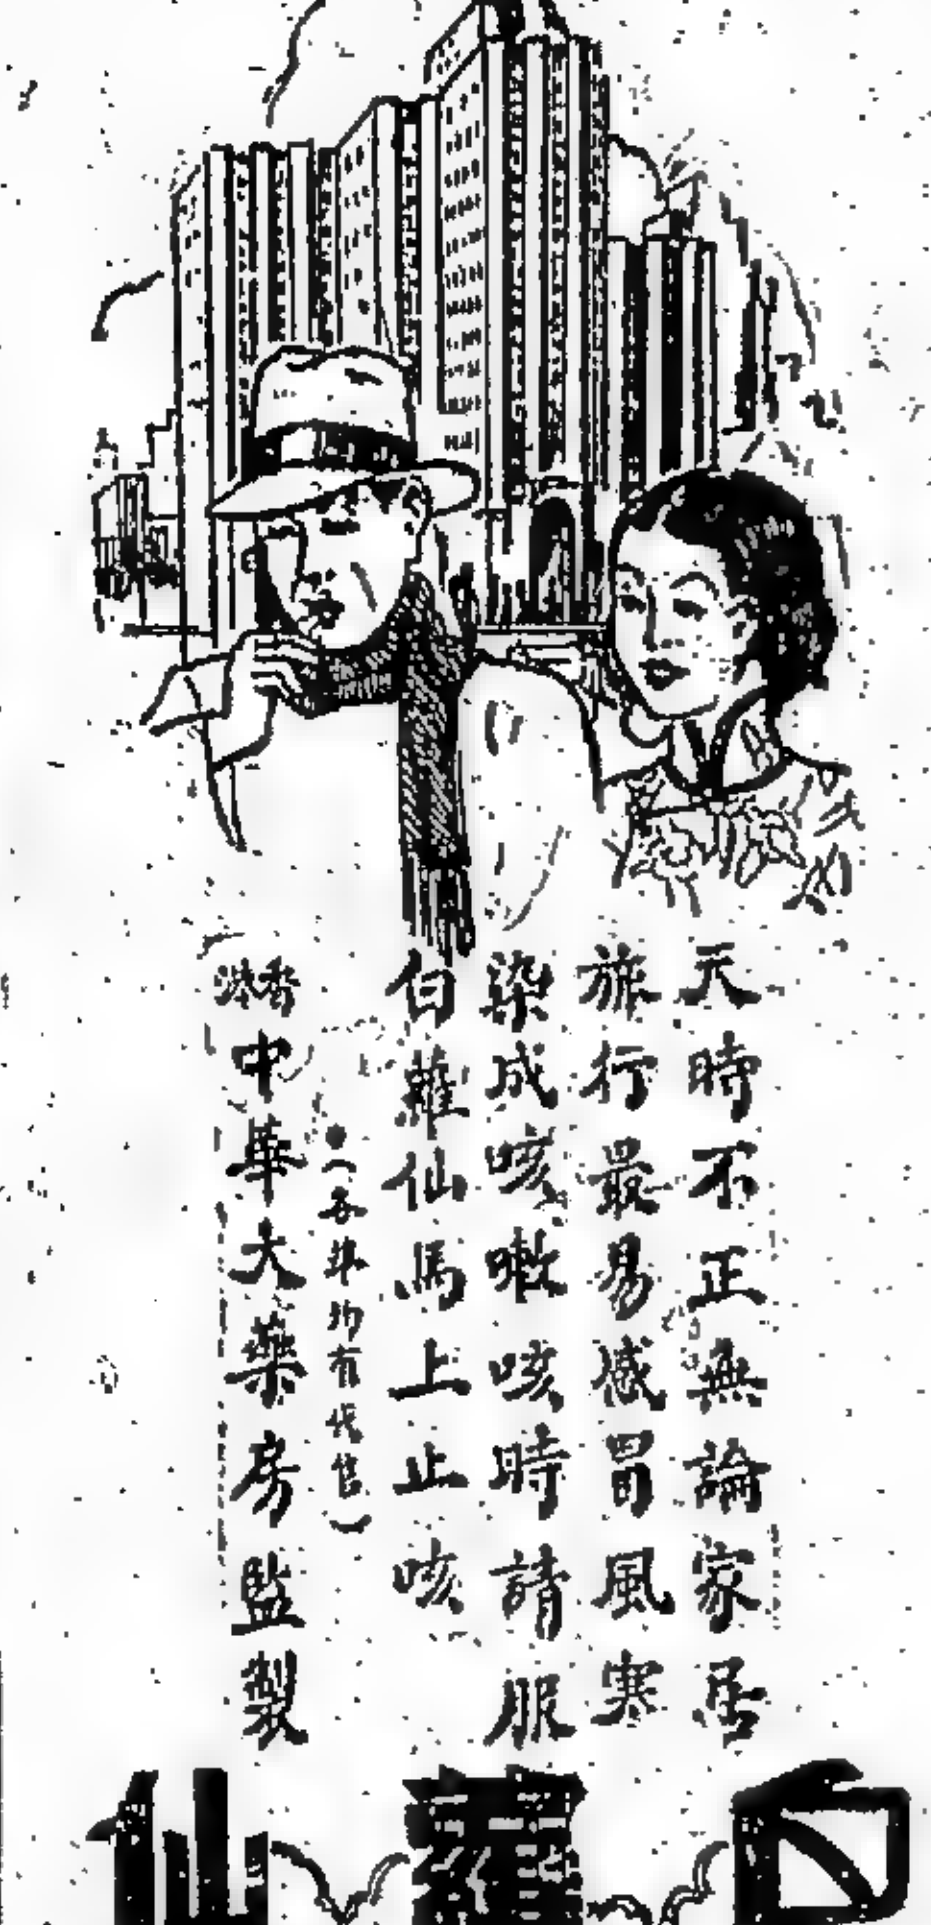 天時不正無論家居
旅行最易感冒風寒
染成咳嗽咳時請服
白蘿仙馬上止咳
(各埠均有代售)
香港
中華大藥房監製
白蘿仙